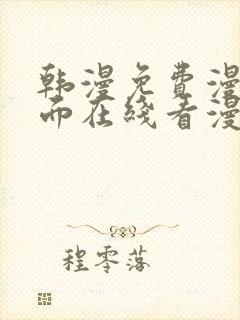 韩漫免费漫
而在线看漫
程零落